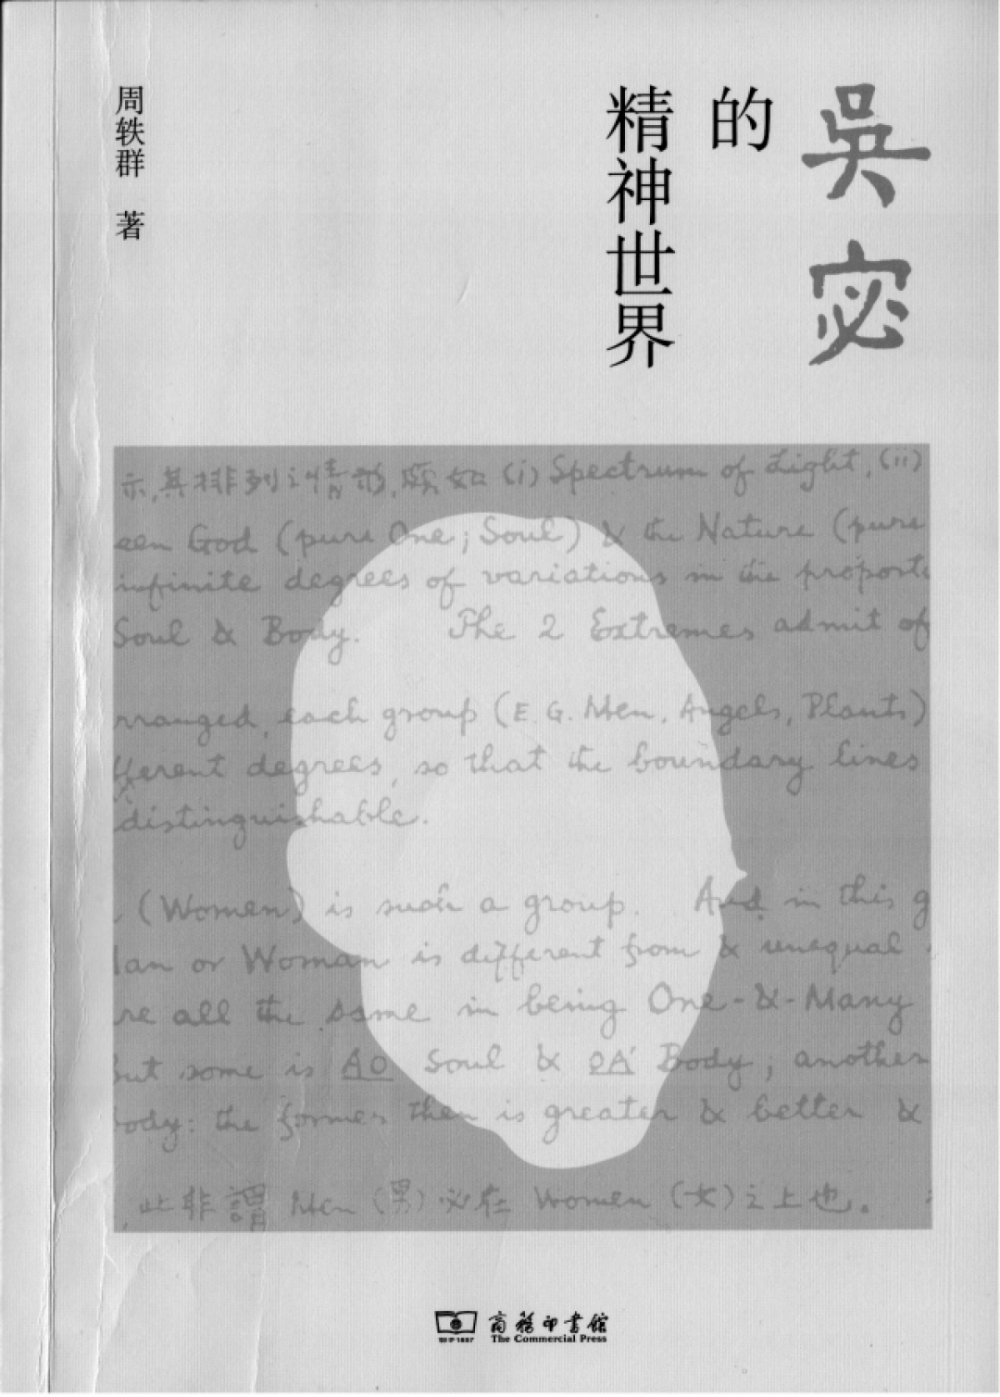 吳宓
的
精神世界
周轶群 著
示,其排列之情形,頗如 (i) Spectrum of Light, (ii)
een God (pure One; Soul) & the Nature (pure
infinite degrees of variations in the proporti
Soul & Body. The 2 Extremes admit of
rranged, each group (E.G. Men, Angels, Plants)
fferent degrees, so that the boundary lines
distinguishable.
(Women) is such a group. And in this g
Man or Woman is different from & unequal
re all the same in being One-&-Many
But some is AO Soul & OA Body; another
Body: the former then is greater & better &
此非謂 Men (男) 必在 Women (女) 之上也。
商務印書館
The Commercial Press